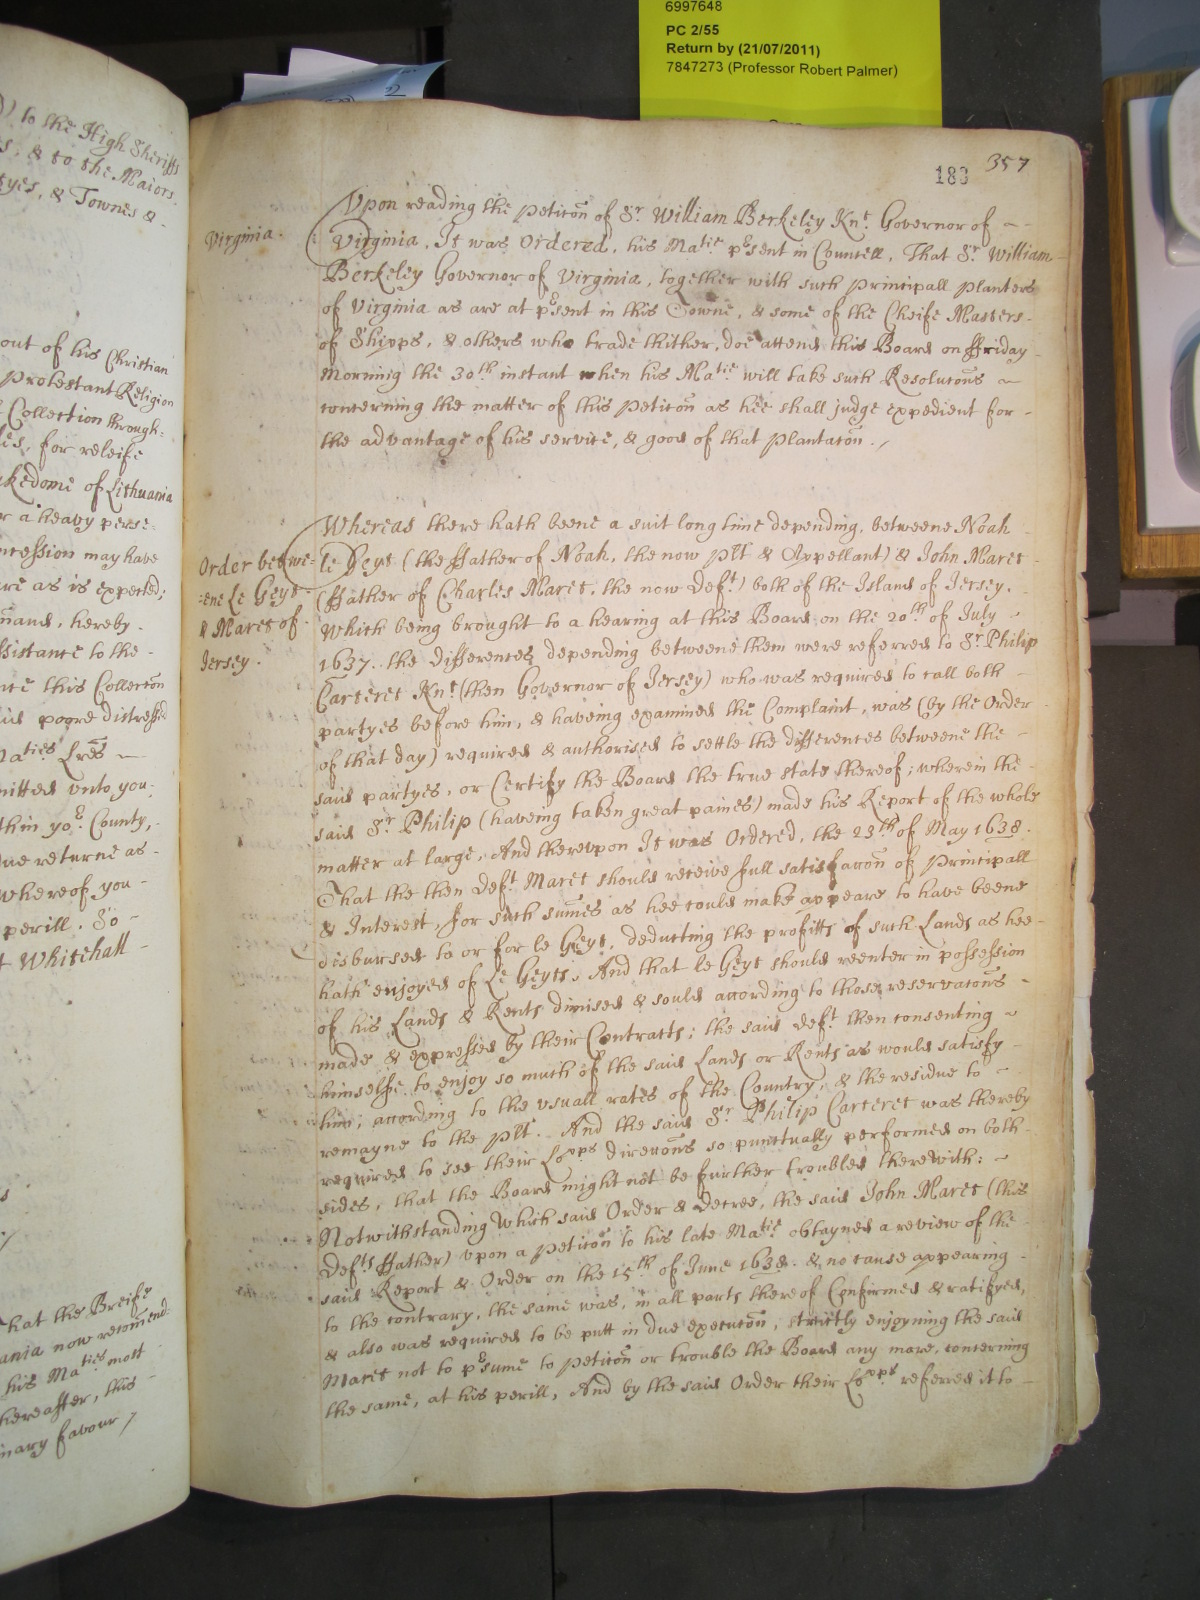 6997648
PC 2/55
Return by (21/07/2011)
7847273 (Professor Robert Palmer)
to the High Sheriffs
& to the Maiors
& Townes &
out of his Christian
Protestant Religion
Collection through:
for releife
of Lithuania
a heavy perse=
may have
as is expected;
hereby
to the
this Collecton
poore distressed
Lres
vnto you
yor County,
returne as
whereof you
perill. So
Whitehall
that the Breife
now recomend
his Maties most
hereafter, this
favour
183 357
Virginia.
Vpon reading the Peticon of Sr William Berkeley Knt Governor of
Virginia, It was Ordered, his Matie psent in Councell, That Sr William
Berkeley Governor of Virginia, together with such Principall Planters
of Virginia as are at psent in this Towne, & some of the Cheife Masters
of Shipps, & others who trade thither, doe attend this Board on ffriday
Morning the 30th instant when his Matie will take such Resolucons
concerning the matter of this Peticon as hee shall judge expedient for
the advantage of his service, & good of that Plantacon.
Order betwe=
=ene Le Geyt
& Maret of
Jersey.
Whereas there hath beene a suit long time depending, betweene Noah
le Geyt (the ffather of Noah, the now Plt & Appellant) & John Maret
(ffather of Charles Maret, the now Deft) both of the Island of Jersey.
Which being brought to a hearing at this Board on the 20th of July
1637. the differences depending betweene them were referred to Sr Philip
Carteret Knt (then Governor of Jersey) who was required to call both
partyes before him, & haveing examined the Complaint, was (by the Order
of that day) required & authorised to settle the differences betweene the
said partyes, or Certify the Board the true state thereof; wherein the
said Sr Philip (haveing taken great paines) made his Report of the whole
matter at large, And therevpon It was Ordered, the 23th of May 1638.
That the then Deft Maret should receive full satisfaccon of Principall
& Interest for such sumes as hee could make appeare to have beene
disbursed to or for le Geyt, deducting the profitts of such Lands as hee
hath enjoyed of Le Geyts, And that le Geyt should reenter in possession
of his Lands & Rents dimised & sould according to those reservacons
made & expressed by their Contracts; the said Deft then consenting
himselfe to enjoy so much of the said Lands or Rents as would satisfy
him; according to the vsuall rates of the Country, & the residue to
remayne to the Plt. And the said Sr Philip Carteret was thereby
required to see their Lopps direccons so punctually performed on both
sides, that the Board might not be further troubled therewith:
Notwithstanding Which said Order & Decree, the said John Maret (this
Defts ffather) vpon a Peticon to his late Matie obtayned a review of the
said Report & Order on the 15th of June 1638. & no cause appearing
to the contrary, the same was, in all parts thereof Confirmed & ratifyed,
& also was required to be putt in due execucon, strictly enjoyning the said
Maret not to psume to Peticon or trouble the Board any more, concerning
the same, at his perill, And by the said Order their Lopps referred it to